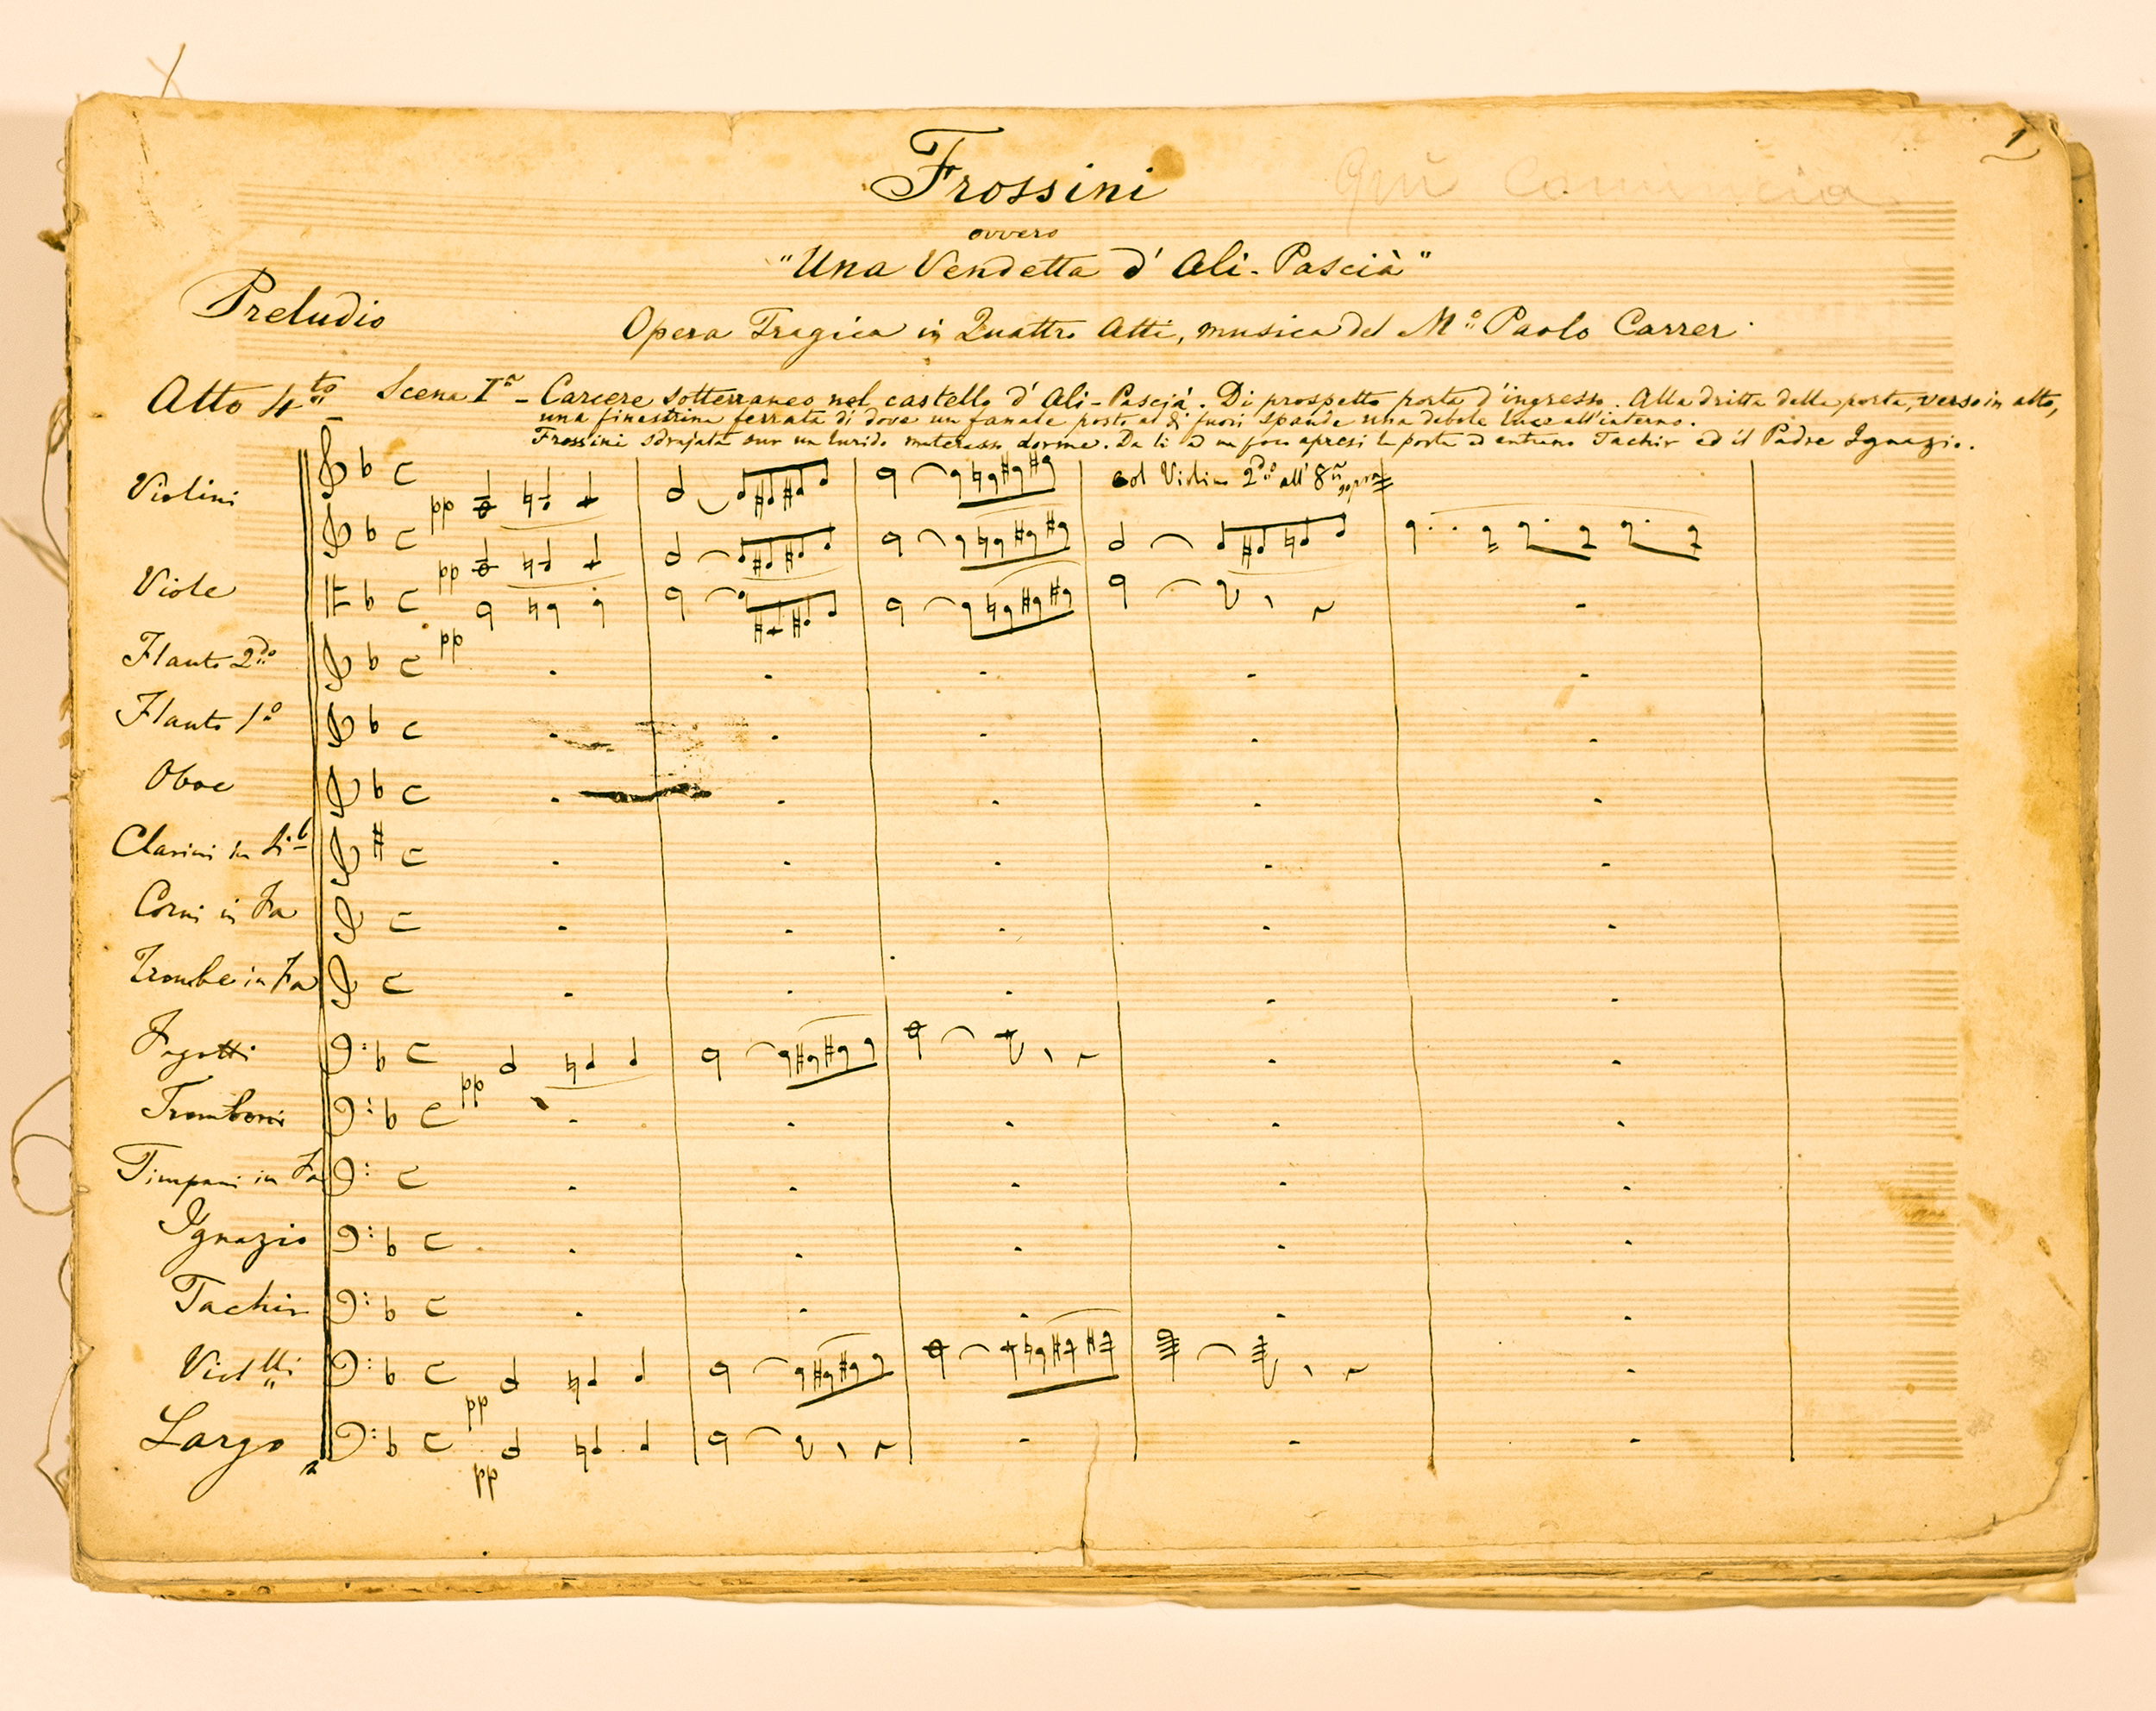 1
Frossini
Quì comincia
ovvero
"Una Vendetta d' Ali-Pascià"
Preludio
Opera Tragica in Quattro Atti, musica del M.o Paolo Carrer.
Atto 4.to - Scena I.a - Carcere sotterraneo nel castello d' Ali-Pascià. Di prospetto porta d'ingresso. Alla dritta della porta, verso in alto,
una finestrina ferrata di dove un fanale posto al di fuori spande una debole luce all'interno.
Frossini sdrajata sur un lurido materasso dorme. Da lì a un poco apresi la porta ed entrano Tachir ed il Padre Ignazio.
Violini
col Violino 2.do all' 8.a sopra
pp
pp
Viole
pp
Flauto 2.do
Flauto 1.o
Oboe
Clarini in Si b
Corni in Fa
Trombe in Fa
Fagotti
pp
Tromboni
Timpani in Fa
Ignazio
Tachir
Viol.lli
pp
Largo
pp